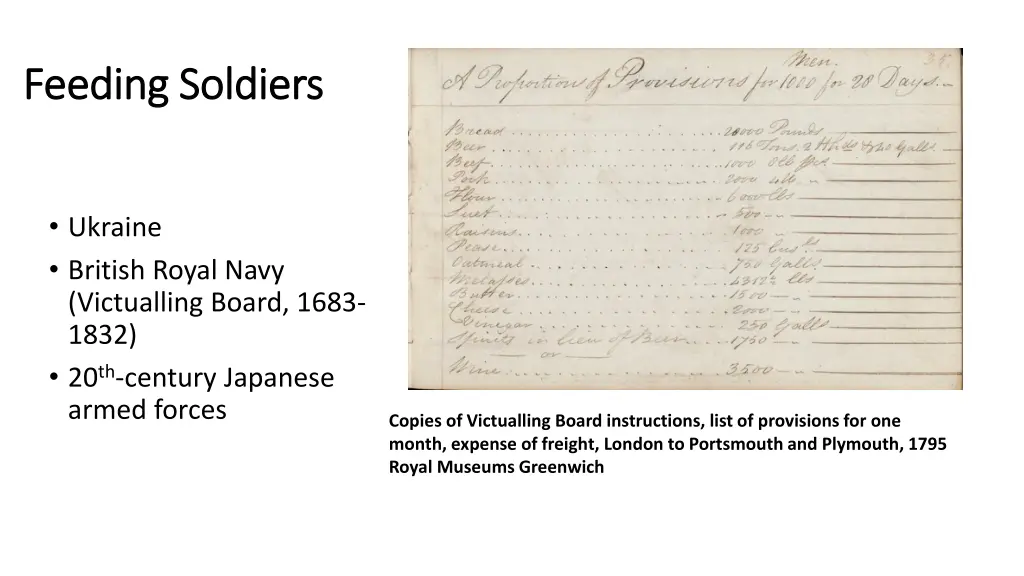 Feeding Soldiers
• Ukraine
• British Royal Navy
(Victualling Board, 1683-
1832)
• 20th-century Japanese
armed forces
Men.
A Proportion of Provisions for 1000 for 28 Days.
Bread 28000 Pounds
Beer 116 Tons. 2 Hhds Galls
Beef 1000
Pork 2000
Flour 6000 lbs
Suet 500
Raisins 1000
Pease 125 Busls
Oatmeal 750 Galls
Melasses lbs
Butter 1500
Cheese 2000
Vinegar 250 Galls
Spirits in lieu of Beer 1750
or
Wine 3500
Copies of Victualling Board instructions, list of provisions for one
month, expense of freight, London to Portsmouth and Plymouth, 1795
Royal Museums Greenwich